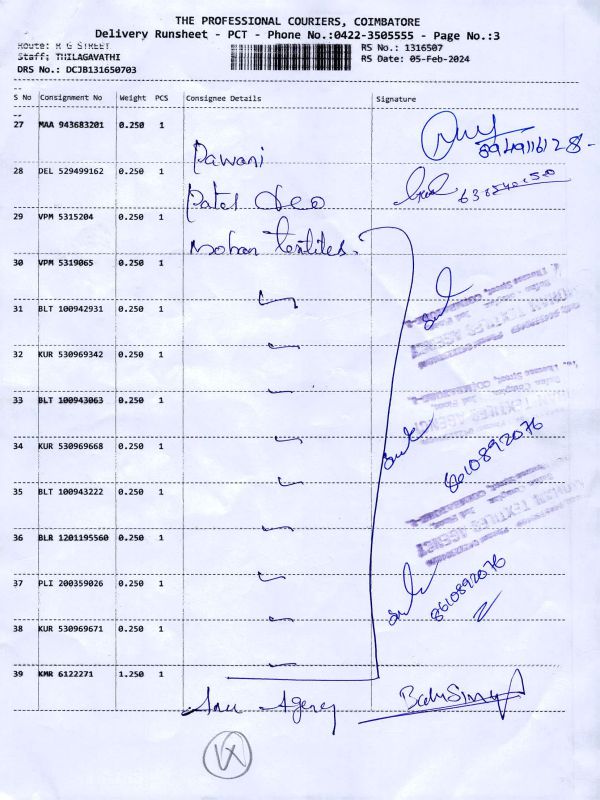 THE PROFESSIONAL COURIERS, COIMBATORE
Delivery Runsheet - PCT - Phone No.:0422-3505555 - Page No.:3
Route: R G STREET RS No.: 1316507
Staff: THILAGAVATHI RS Date: 05-Feb-2024
DRS No.: DCJB131650703
S No Consignment No Weight PCS Consignee Details Signature
27 MAA 943683201 0.250 1
Pawani 8949116128-
28 DEL 529499162 0.250 1
Patel
29 VPM 5315204 0.250 1
Mohan Textiles.
30 VPM 5319065 0.250 1
31 BLT 100942931 0.250 1
32 KUR 530969342 0.250 1
33 BLT 100943063 0.250 1
34 KUR 530969668 0.250 1
8610892076
35 BLT 100943222 0.250 1
36 BLR 1201195560 0.250 1
37 PLI 200359026 0.250 1
8610892076
38 KUR 530969671 0.250 1
39 KMR 6122271 1.250 1
Agency